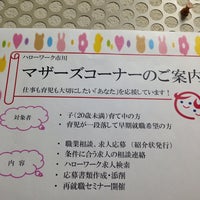 ハローワーク市川
マザーズコーナーのご案内
仕事も育児も大切にしたい「あなた」を応援しています！
対象者
・子（20歳未満）育て中の方
・育児が一段落して早期就職希望の方
内容
・職業相談、求人応募（紹介状発行）
・条件に合う求人の相談連絡
・ハローワーク求人検索
・応募書類作成・添削
・再就職セミナー開催